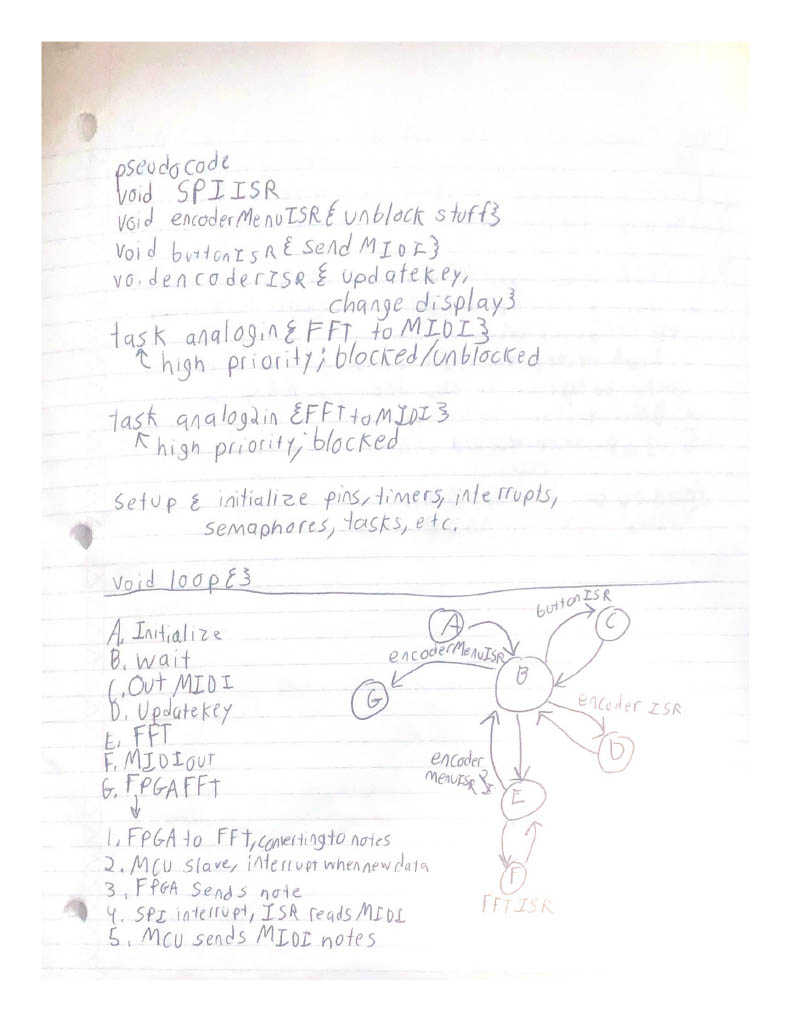 pseudocode
void SPI ISR
void encoderMenuISR { unblock stuff}
void buttonISR { send MIDI }
void encoderISR { updatekey,
change display}
task analogin { FFT to MIDI}
high priority; blocked/unblocked
task analog2in {FFT to MIDI}
high priority; blocked
setup { initialize pins, timers, interrupts,
semaphores, tasks, etc.
void loop{}
A. Initialize
B. wait
C. Out MIDI
D. Updatekey
E. FFT
F. MIDIout
G. FPGA FFt
1. FPGA to FFt, converting to notes
2. MCU slave, interrupt when new data
3. FPGA sends note
4. SPI interrupt, ISR reads MIDI
5. MCU sends MIDI notes
A
buttonISR
C
encoderMenuISR
B
G
encoder ISR
D
encoder
menuISR
E
F
FFT ISR